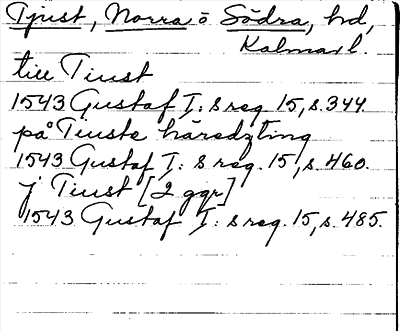 Tjust, Norra o Södra, hd,
Kalmar l.
till Tiust
1543 Gustaf I:s reg. 15, s. 344.
på Tiuste häredzting
1543 Gustaf I:s reg. 15, s. 460.
j Tiust [2 ggr]
1543 Gustaf I:s reg. 15, s. 485.